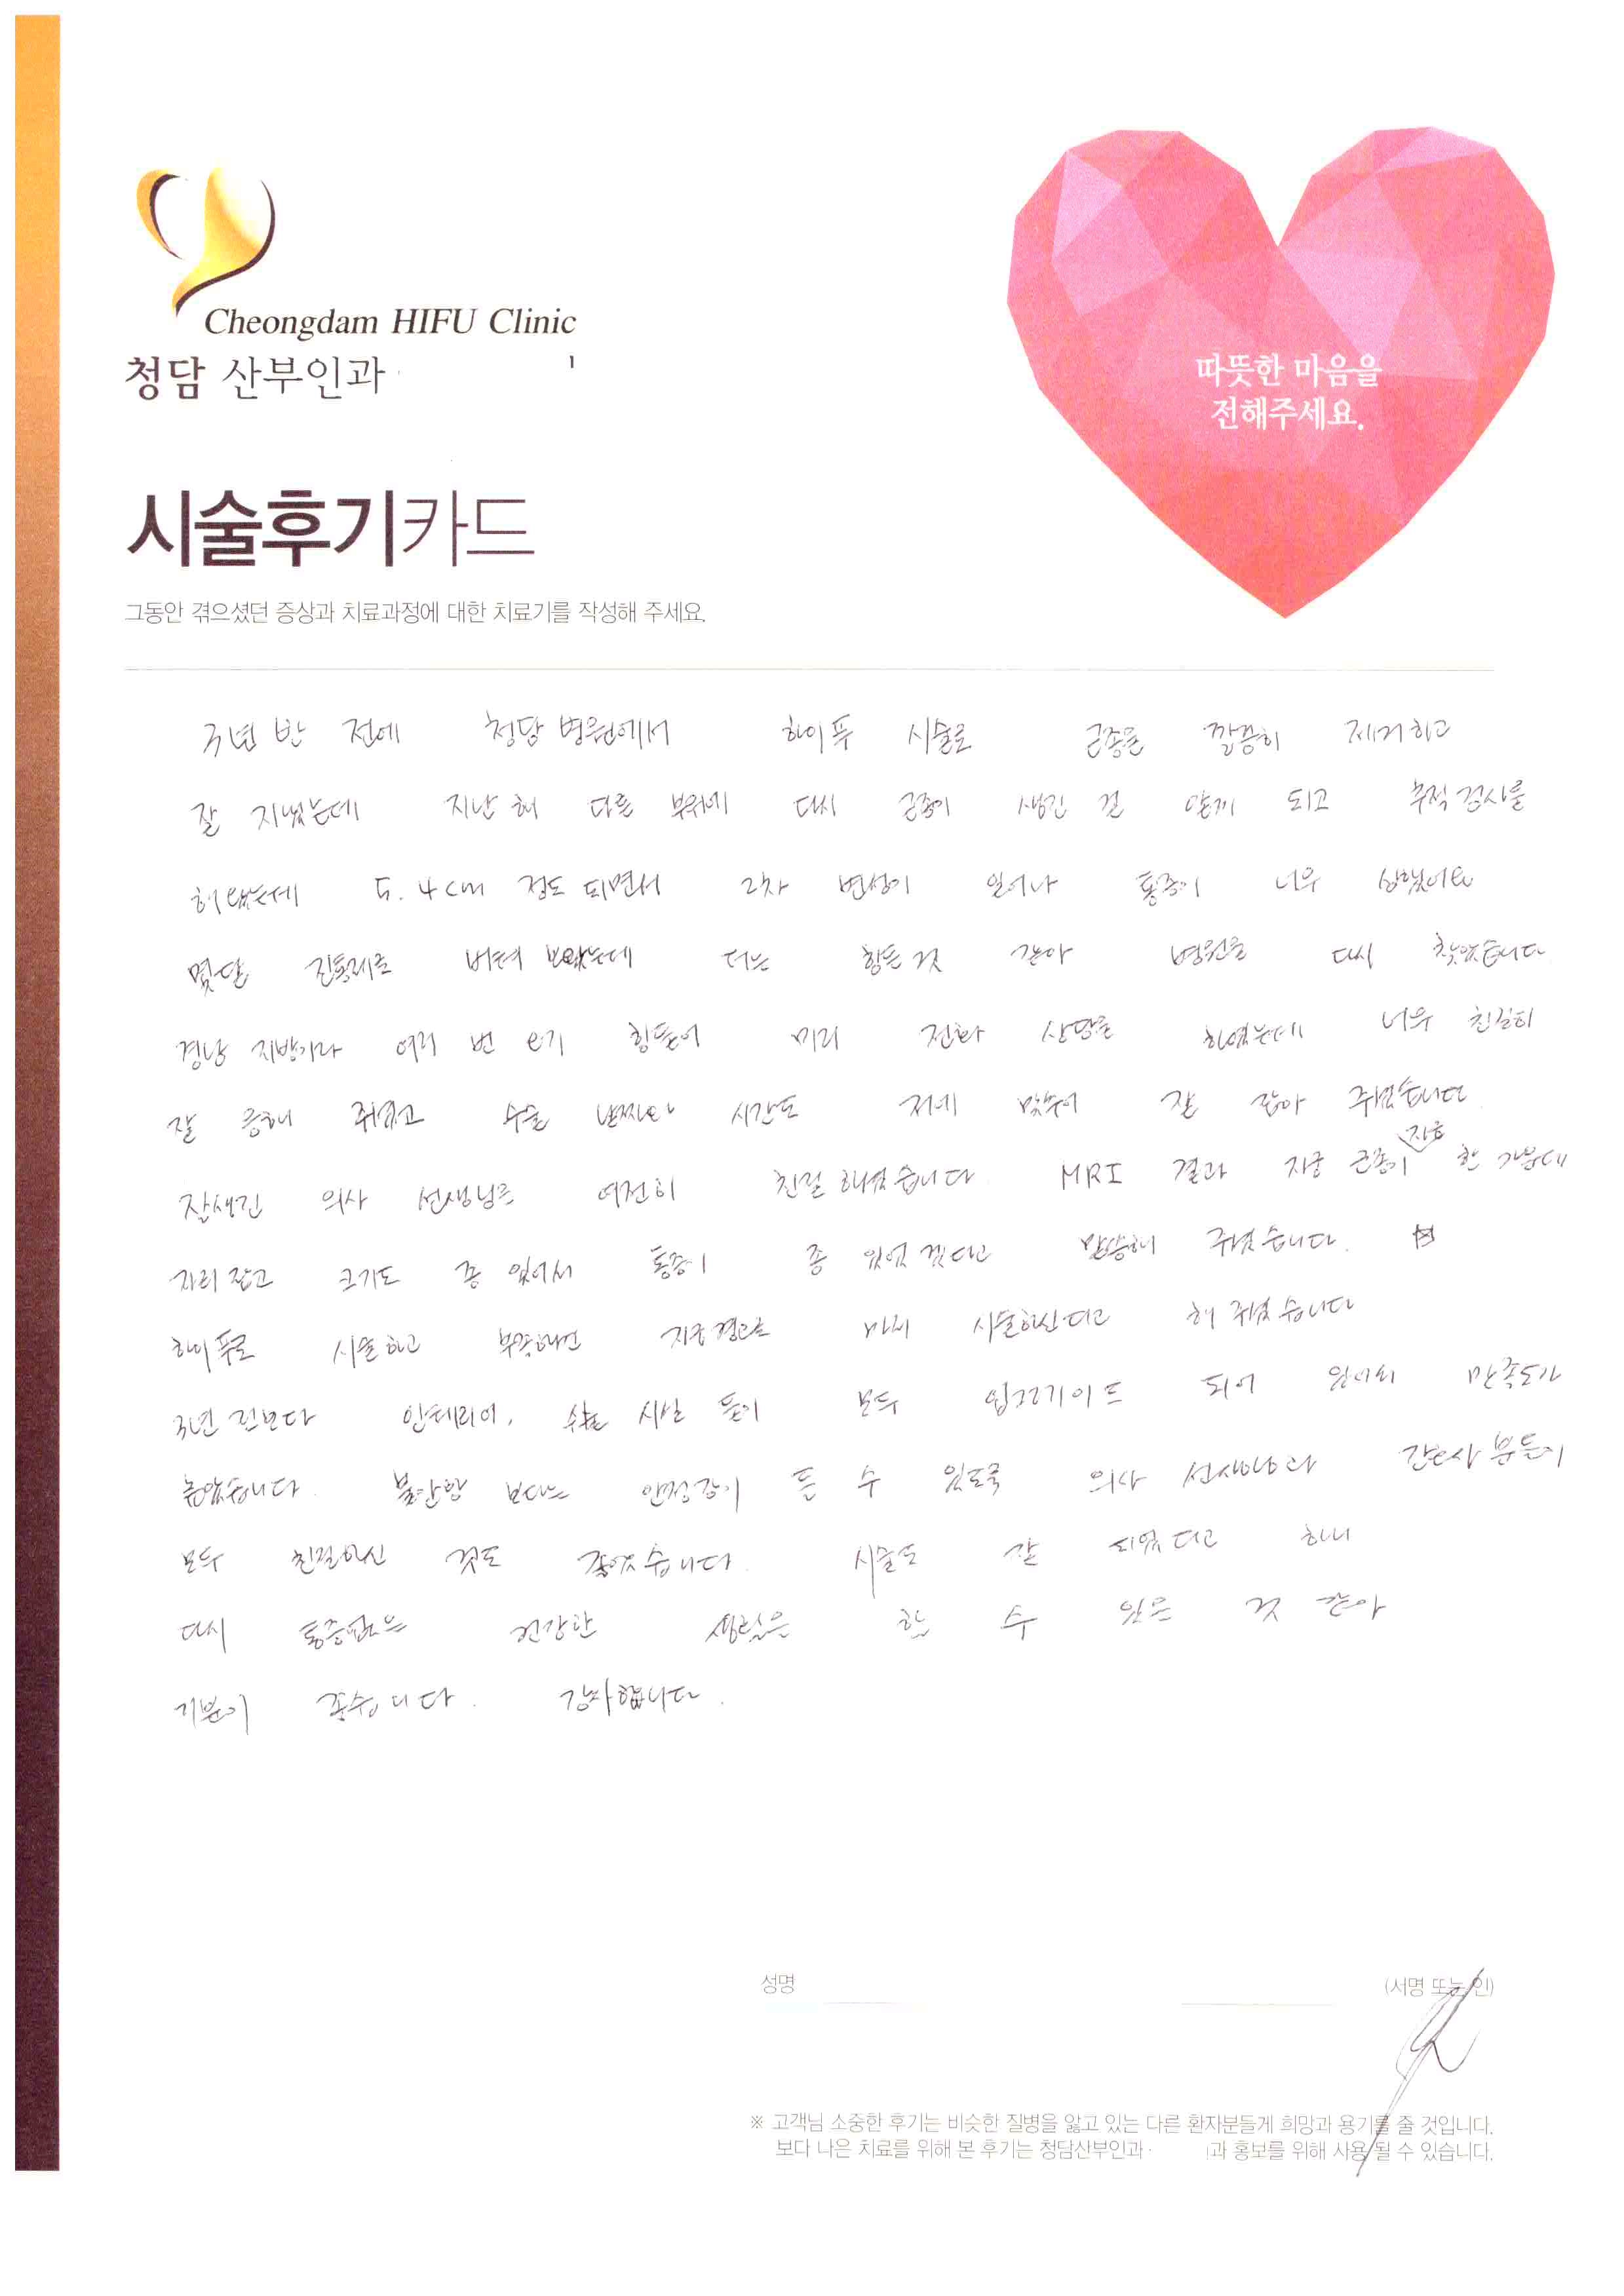 Cheongdam HIFU Clinic
청담 산부인과
따뜻한 마음을
전해주세요.
시술후기카드
그동안 겪으셨던 증상과 치료과정에 대한 치료기를 작성해 주세요.
3년 반 전에 청담 병원에서 하이푸 시술로 근종을 깔끔히 제거하고
잘 지냈는데 지난 해 다른 부위에 다시 근종이 생긴 걸 알게 되고 추적 검사를
하였는데 5.4cm 정도 되면서 2차 변성이 일어나 통증이 너무 심했어요
몇달 진통제로 버텨 보았는데 더는 힘든 것 같아 병원을 다시 찾았습니다
경남 지방이라 여러 번 오기 힘들어 미리 전화 상담을 하였는데 너무 친절히
잘 응해 주셨고 수술 날짜와 시간도 저에 맞추어 잘 잡아 주셨습니다
잘생긴 의사 선생님은 여전히 친절 하셨습니다 MRI 결과 자궁 근종이 자궁 한 가운데
자리 잡고 크기도 좀 있어서 통증이 좀 있었겠다고 말씀해 주셨습니다.
하이푸로 시술하고 부족하면 자궁경으로 마저 시술하신다고 해 주셨습니다
3년 전보다 인테리어, 수술 시설 등이 모두 업그레이드 되어 있어서 만족도가
높았습니다. 불안함 보다는 안정감이 들 수 있도록 의사 선생님과 간호사 분들이
모두 친절하신 것도 좋았습니다. 시술도 잘 되었다고 하니
다시 통증없는 건강한 생활을 할 수 있을 것 같아
기분이 좋습니다. 감사합니다.
성명 (서명 또는 인)
※ 고객님 소중한 후기는 비슷한 질병을 앓고 있는 다른 환자분들게 희망과 용기를 줄 것입니다.
보다 나은 치료를 위해 본 후기는 청담산부인과 과 홍보를 위해 사용 될 수 있습니다.